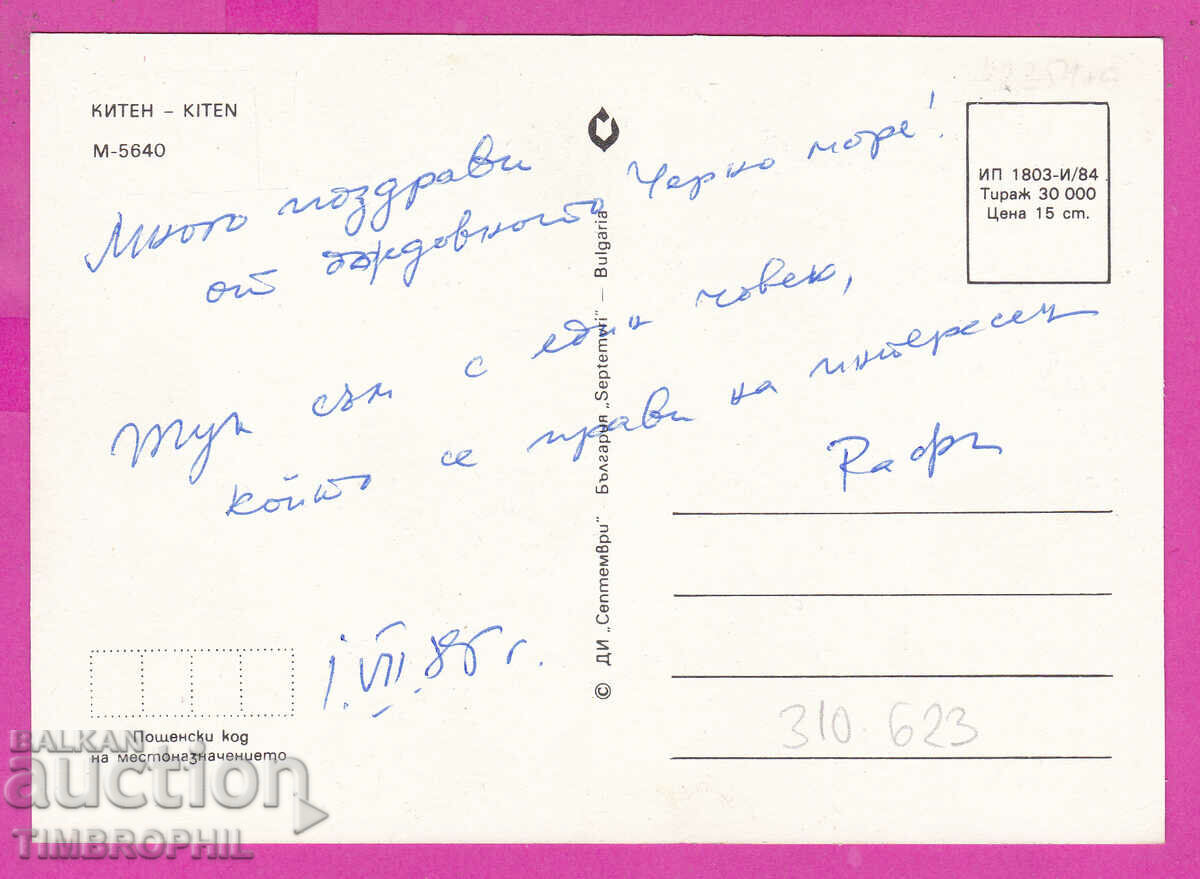 КИТЕН – KITEN
М-5640
ИП 1803-И/84
Тираж 30 000
Цена 15 ст.
Много поздрави
от Черно море!
Тук съм с един човек,
който се прави на интересен
Рафи
1.VII.86 г.
© ДИ „Септември" – България „Septemvri" – Bulgaria
Пощенски код
на местоназначението
310.623
BALKAN
auction
TIMBROPHIL